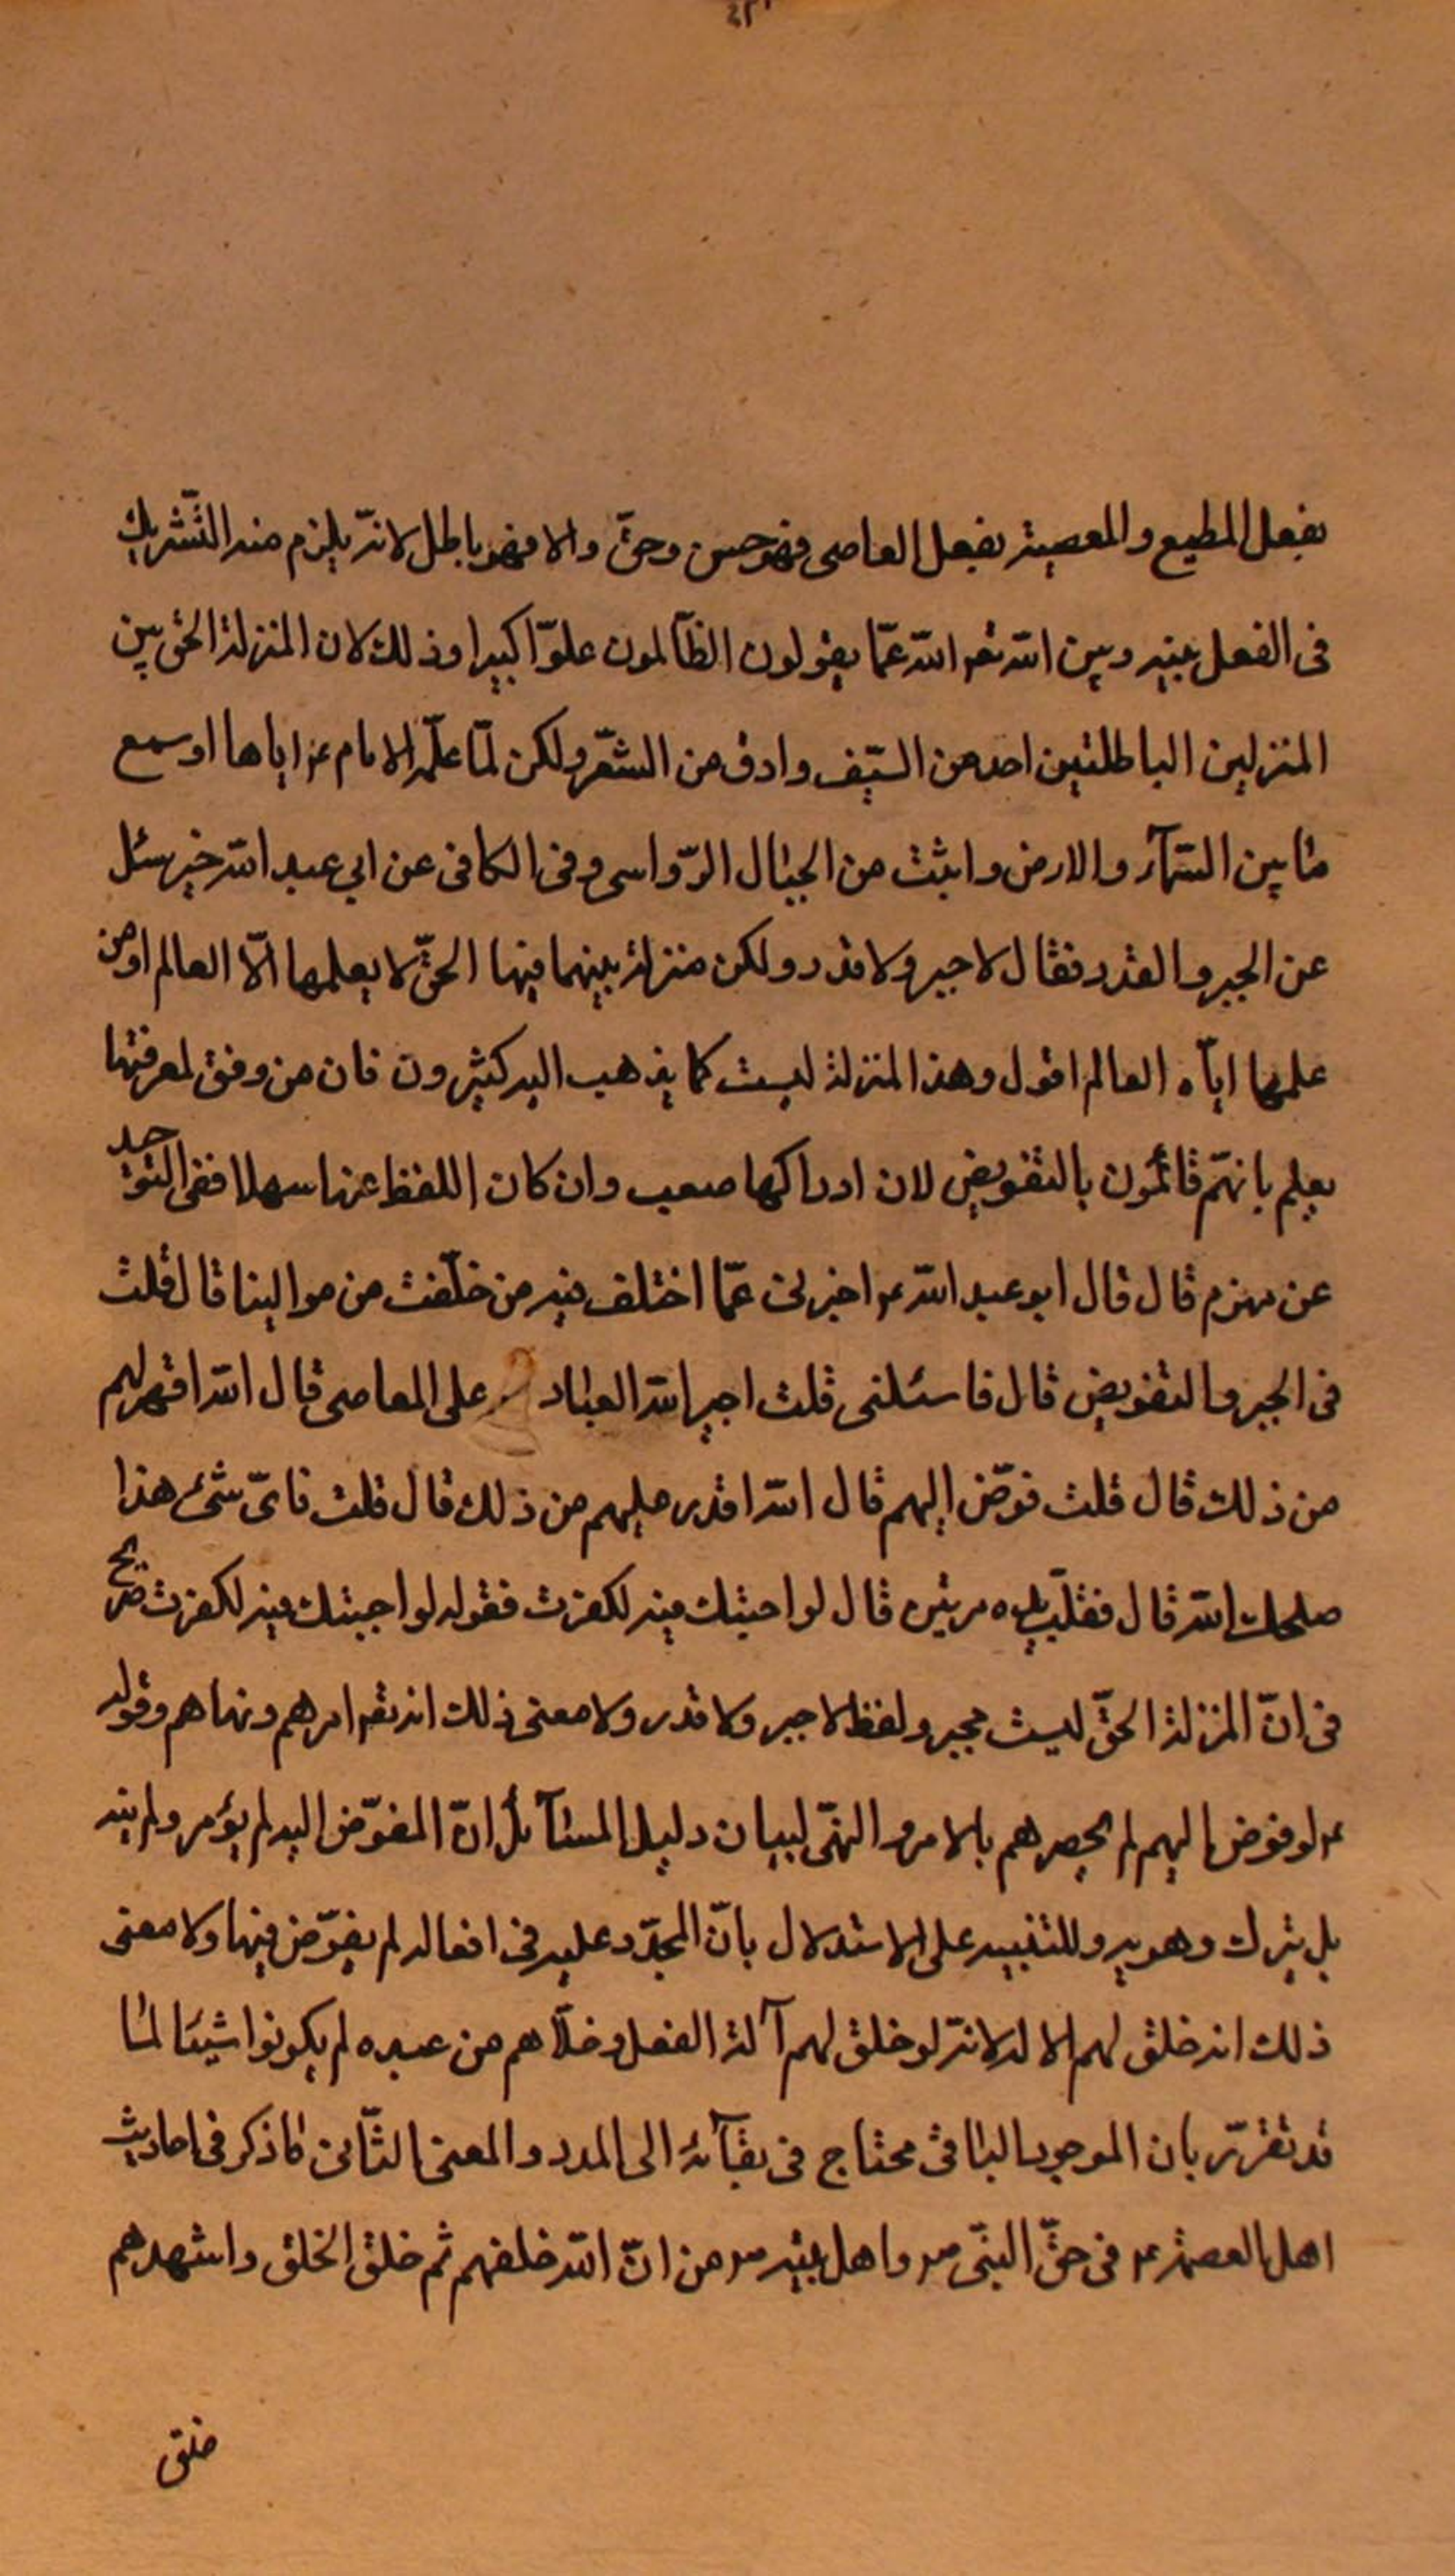 بفعل المطيع والمعصية بفعل العاصى فهو حسن وحقّ والا فهو باطل لانّه يلزم منه التّشريك
فى الفعل بينه وبين الله تعه الله عمّا يقولون الظّالمون علوّا كبيرا وذلك لان المنزلة الحق بين
المنزلتين الباطلتين احد من السّيف وادق من الشّعر ولكن لمّا علّمه الامام عم اياها اوسع
ما بين السّمآء والارض واثبت من الجبال الرّواسى وفى الكافى عن ابي عبد الله خبر سئل
عن الجبر والقدر فقال لا جبر ولا قدر ولكن منزلة بينهما فيها الحقّ لا يعلمها الّا العالم او من
علمها ايّاه العالم اقول وهذه المنزلة ليست كما يذهب اليه كثيرون فان من وفق لمعرفتها
يعلم بانهّم قائمون بالتفويض لان ادراكها صعب وان كان اللفظ عنها سهلا ففى التوحيد
عن مهزم قال قال ابو عبد الله عم اخبرنى عمّا اختلف فيه من خلّفت من موالينا قال قلت
فى الجبر والتفويض قال فاسئلنى قلت اجبر الله العباد على المعاصى قال الله اقهر لهم
من ذلك قال قلت فوّض اليهم قال الله اقدر عليهم من ذلك قال قلت فاىّ شئ هذا
صلحك الله قال فقلّب يده مرتين قال لو اجبتك فيه لكفرت فقوله لو اجبتك فيه لكفرت صريح
فى انّ المنزلة الحقّ ليست بجبر ولفظ لا جبر ولا قدر ولا معنى ذلك انه تعه امرهم ونهاهم وقوله
عم لو فوض اليهم لم يحصرهم بالامر والنهّى لبيان دليل المسائل انّ المفوّض اليه لم يؤمر ولم ينه
بل يترك وهويه وللتنبيه على الاستدلال بانّ المجدّد عليه فى افعاله لم يفوّض فيها ولا معنى
ذلك انه خلق لهم الا لة لانّه لو خلق لهم آلة الفعل وخلّاهم من عبده لم يكونوا شيئا لما
قد تقرّر بان الموجود الباقى محتاج فى بقآئه الى المدد والمعنى الثّانى ما ذكر فى احاديث
اهل العصمة عم فى حقّ النبّى ص واهل بيته ص من انّ الله خلقهم ثم خلق الخلق واشهدهم
خلق